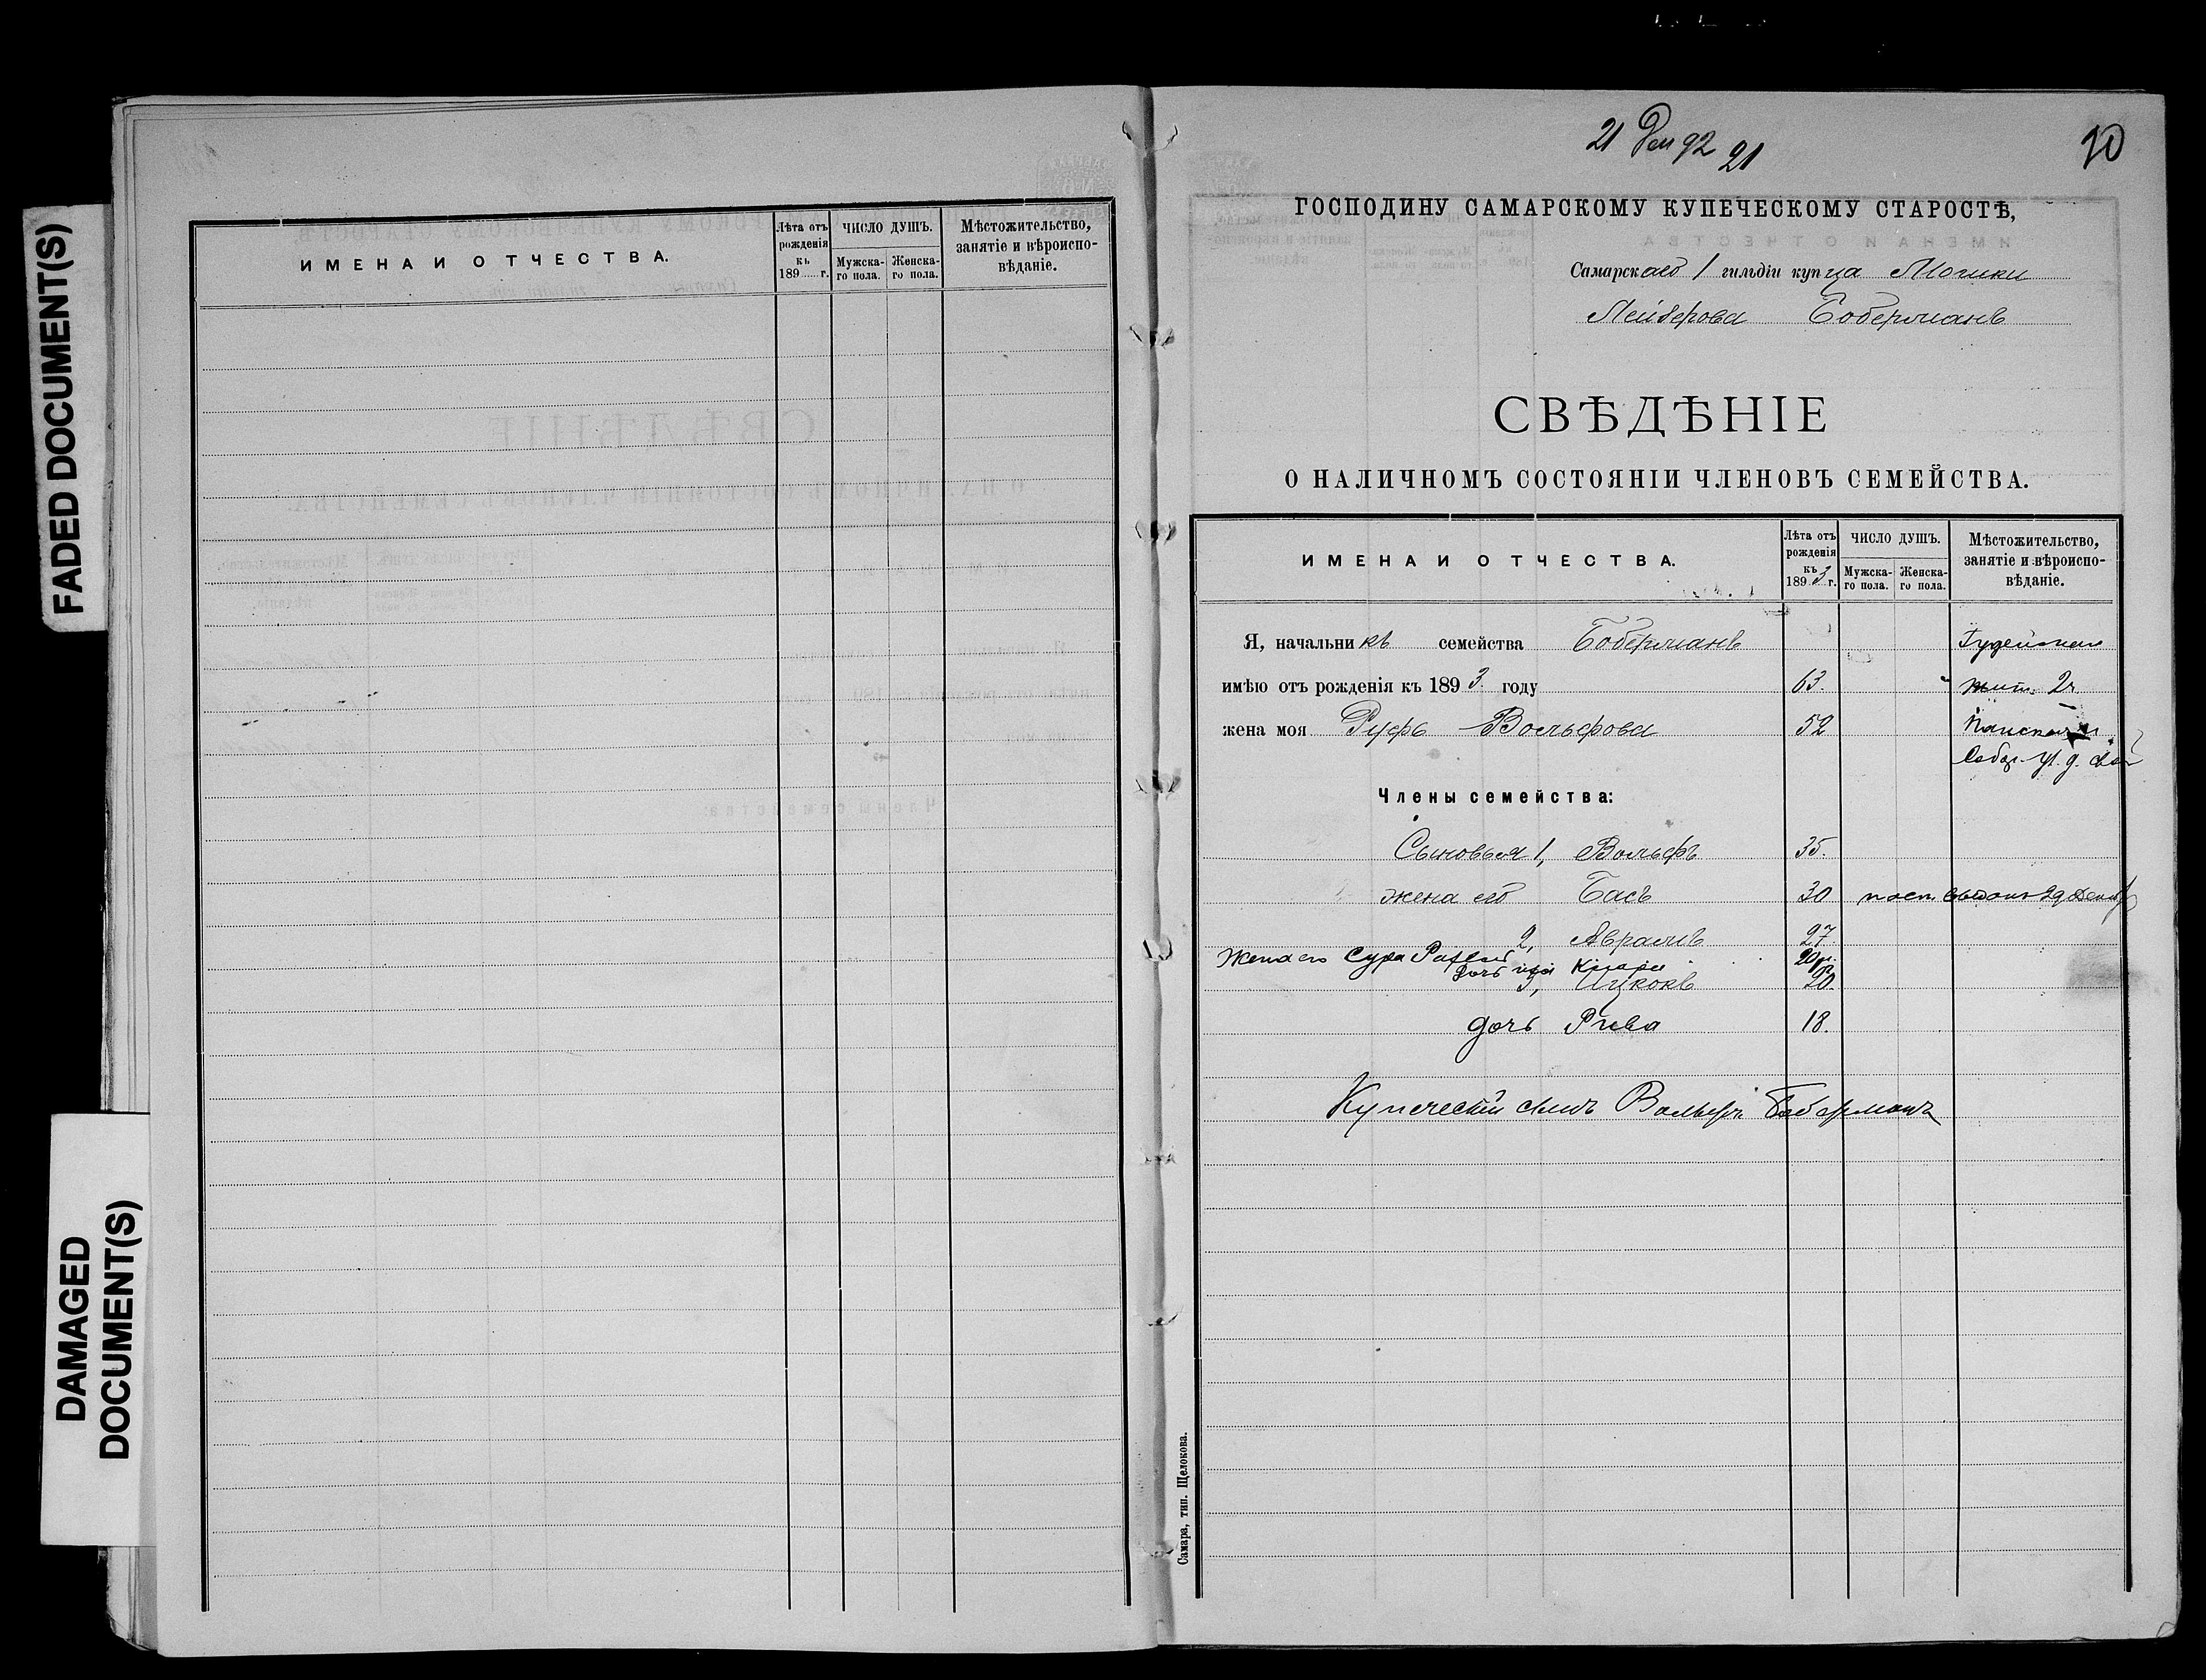 FADED DOCUMENT(S)
DAMAGED
DOCUMENT(S)
ИМЕНА И ОТЧЕСТВА.
Лѣта отъ
рожденія
къ
189 г.
ЧИСЛО ДУШЪ.
Мужска-
го пола.
Женска-
го пола.
Мѣстожительство,
занятіе и вѣроиспо-
вѣданіе.
21 Дек 92
21
ГОСПОДИНУ САМАРСКОМУ КУПЕЧЕСКОМУ СТАРОСТѢ,
Самарскаго 1 гильдіи купца Мошки
Лейзерова Боберманъ
СВѢДѢНІЕ
О НАЛИЧНОМЪ СОСТОЯНІИ ЧЛЕНОВЪ СЕМЕЙСТВА.
ИМЕНА И ОТЧЕСТВА.
Лѣта отъ
рожденія
къ
1893 г.
ЧИСЛО ДУШЪ.
Мужска-
го пола.
Женска-
го пола.
Мѣстожительство,
занятіе и вѣроиспо-
вѣданіе.
Я, начальникъ семейства Боберманъ Іудейскаго
имѣю отъ рожденія къ 1893 году 63. жит. 2ч
жена моя Руфь Вольфова 52 Панская
ул. д.
Члены семейства:
Сыновья 1, Вольфъ 35.
жена его Бася 30
2, Аврамъ 27
Жена его Сура 20
дочь
3, Ицкокъ 20.
дочь Рива 18.
Купеческій сынъ Вольфъ Боберманъ
Самара, тип. Щелокова.